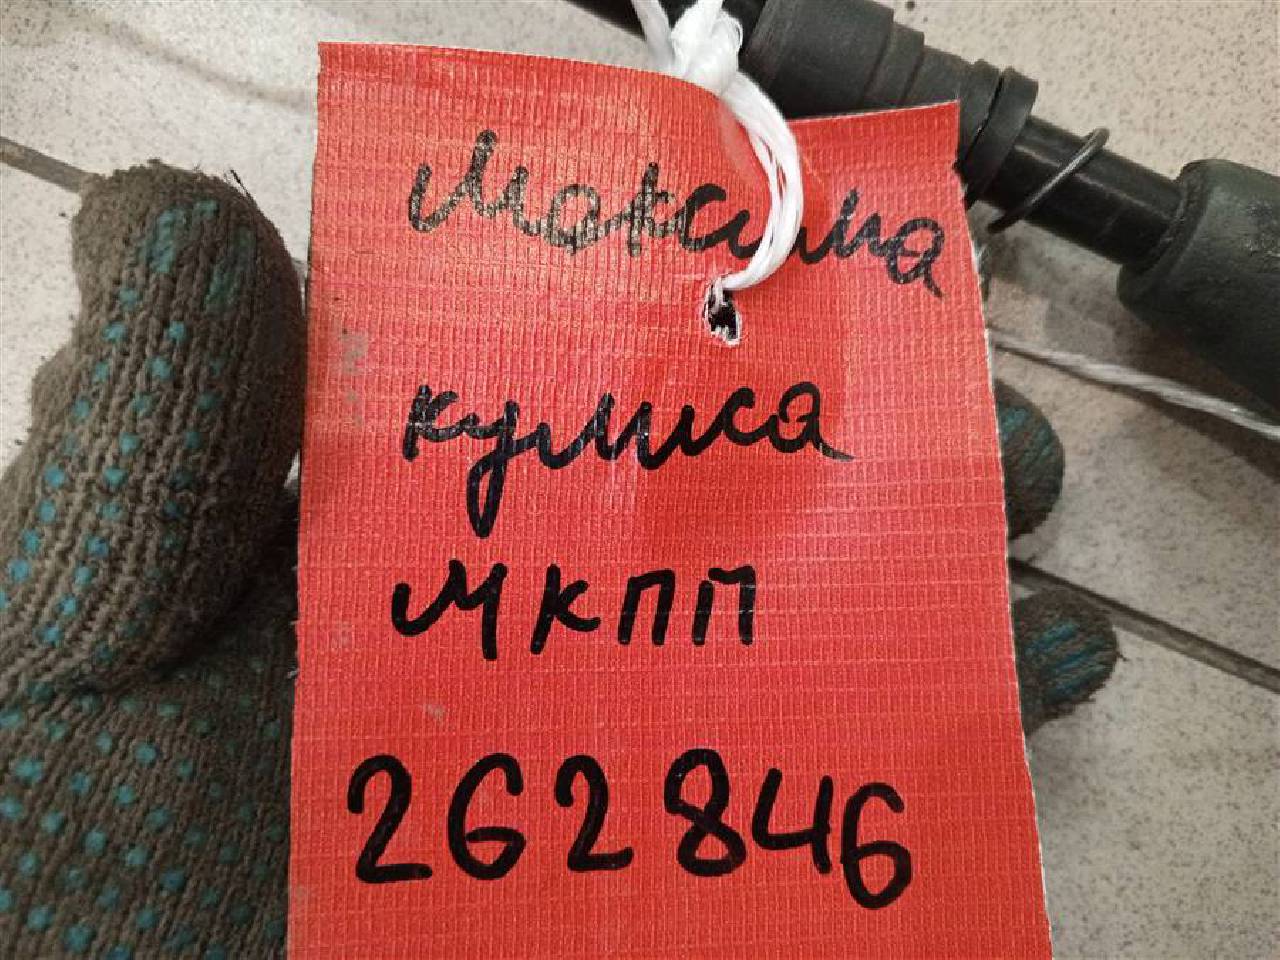 Максима
кулиса
МКПП
262846